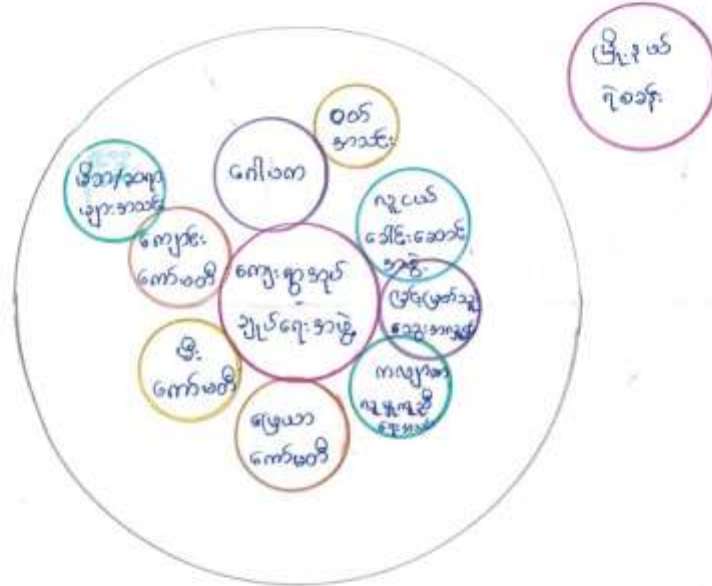 မြို့နယ်
ရဲစခန်း
ဝတ်
အသင်း
ဂေါပက
မိဘ/ဆရာ
များအသင်း
လူငယ်
ခေါင်းဆောင်
အဖွဲ့
ကျောင်း
ကော်မတီ
ကျေးရွာအုပ်
ချုပ်ရေးအဖွဲ့
သွေးအလှူရှင်
မီး
ကော်မတီ
ကလျာဏ
လူမှုကူညီ
ရေးအသင်း
မြေယာ
ကော်မတီ